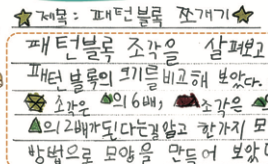 ☆제목: 패턴블록 쪼개기☆
패턴블록 조각을 살펴보고
패턴 블록의 크기를 비교해 보았다.
조각은 의 6배, 조각은
의 2배가 된다는걸 알고 한가지 모
방법으로 모양을 만들어 보았